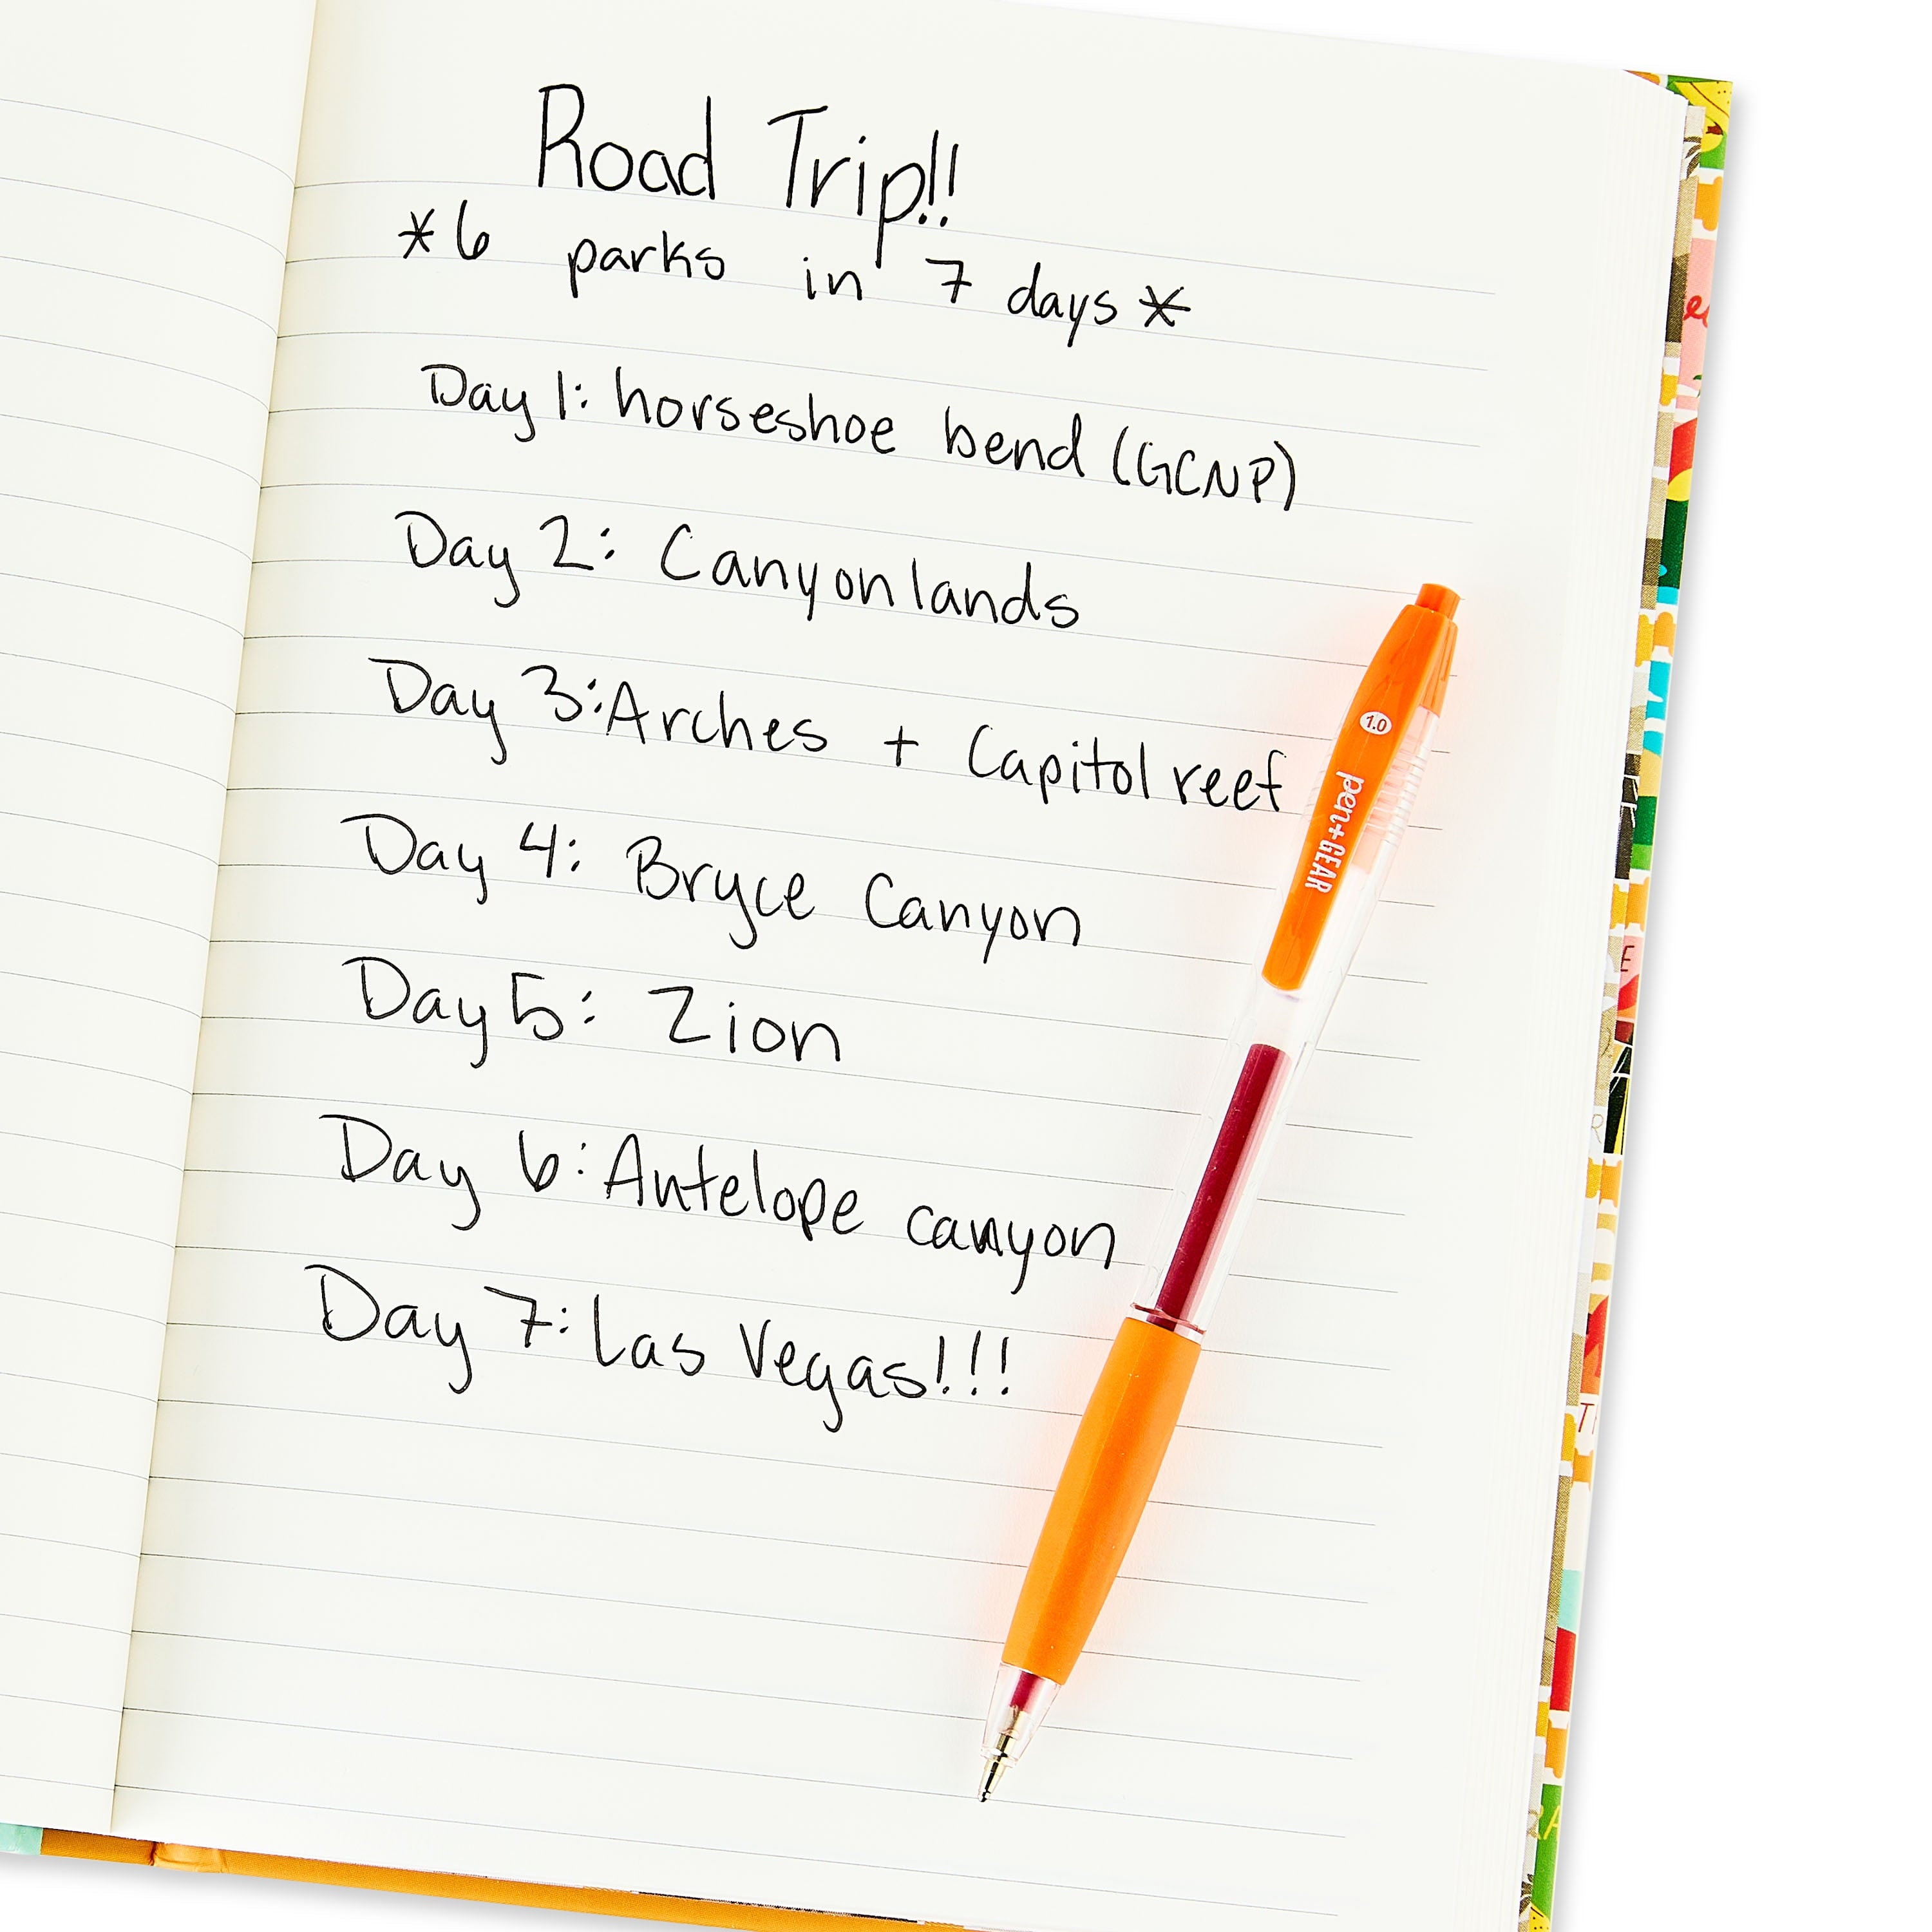 Road Trip!!
*6 parks in 7 days*
Day 1: horseshoe bend (GCNP)
Day 2: Canyonlands
Day 3: Arches + Capitol reef
Day 4: Bryce Canyon
Day 5: Zion
Day 6: Antelope canyon
Day 7: Las Vegas!!!
1.0
pen+GEAR